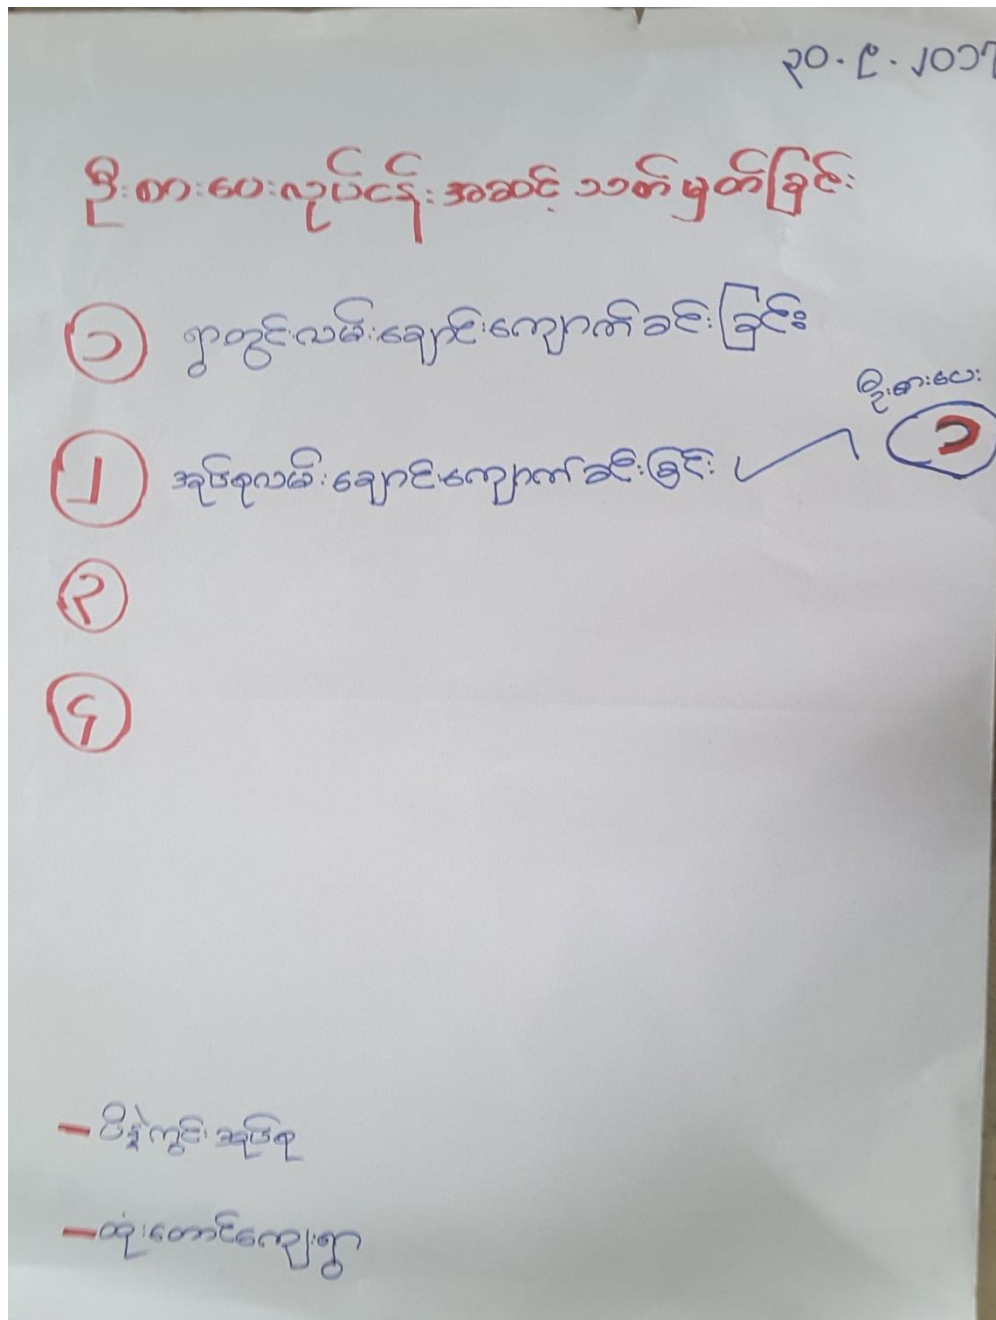 ၃၀.၉.၂၀၁၇
ဦးစားပေးလုပ်ငန်းအဆင့်သတ်မှတ်ခြင်း
၁ ရွာတွင်းလမ်းချောင်းကျောက်ခင်းခြင်း
ဦးစားပေး
၂ အုပ်စုလမ်းချောင်းကျောက်ခင်းခြင်း ၁
၃
၄
- ပိန္နဲကွင်းအုပ်စု
- ထုံးတောင်ကျေးရွာ